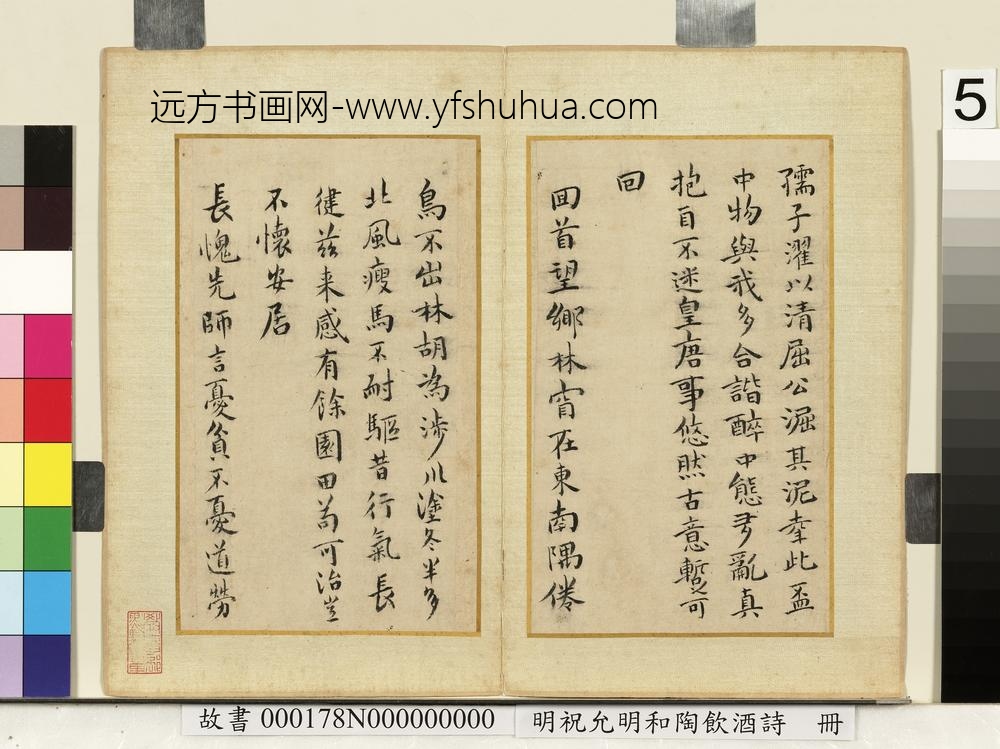 远方书画网-www.yfshuhua.com
5
孺子濯以清屈公淈其泥幸此盃
中物與我多合諧醉中態多亂真
抱自不迷皇唐事悠然古意暫可
回
回首望鄉林宵在東南隅倦
鳥不出林胡為涉川塗冬半多
北風瘦馬不耐驅昔行氣長
健茲来感有餘園田苟可治豈
不懷安居
長愧先師言憂貧不憂道勞
故書 000178N000000000
明祝允明和陶飲酒詩 冊